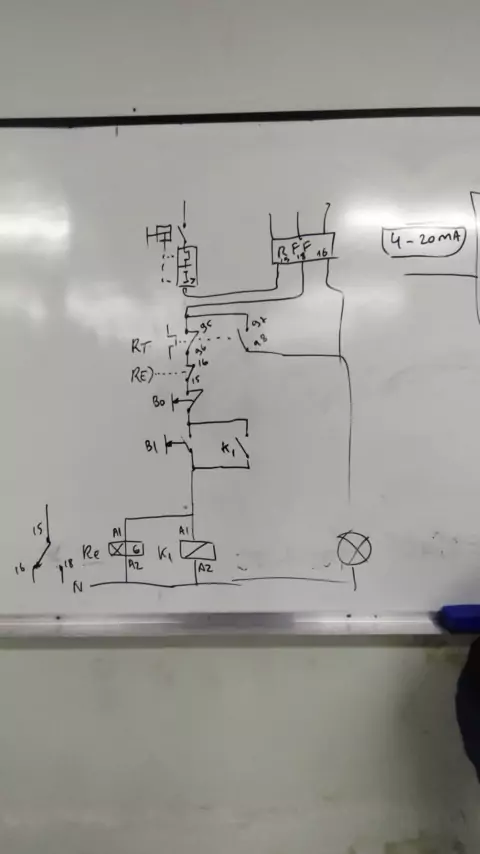 RFF
15 18 16
4-20mA
95
97
RT
96
98
16
RE)
15
B0
B1
K1
15
A1
A1
Re
6
K1
16
18
A2
A2
N